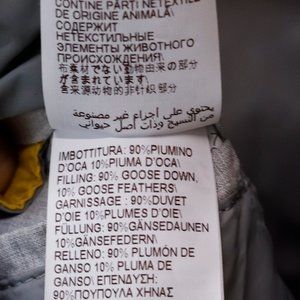 CONTINE PARTI NETEXTILE
DE ORIGINE ANIMALA\
СОДЕРЖИТ
НЕТЕКСТИЛЬНЫЕ
ЭЛЕМЕНТЫ ЖИВОТНОГО
ПРОИСХОЖДЕНИЯ\
布素材でない動物由来の部分
が含まれています\
含来源动物的非针织部分
يحتوي على أجزاء غير مصنوعة
من النسيج وذات أصل حيواني
IMBOTTITURA: 90%PIUMINO
D'OCA 10%PIUMA D'OCA\
FILLING: 90% GOOSE DOWN,
10% GOOSE FEATHERS\
GARNISSAGE : 90%DUVET
D'OIE 10%PLUMES D'OIE\
FÜLLUNG: 90%GÄNSEDAUNEN
10%GÄNSEFEDERN\
RELLENO: 90% PLUMÓN DE
GANSO 10% PLUMA DE
GANSO\ ΕΠΕΝΔΥΣΗ:
90%ΠΟΥΠΟΥΛΑ ΧΗΝΑΣ